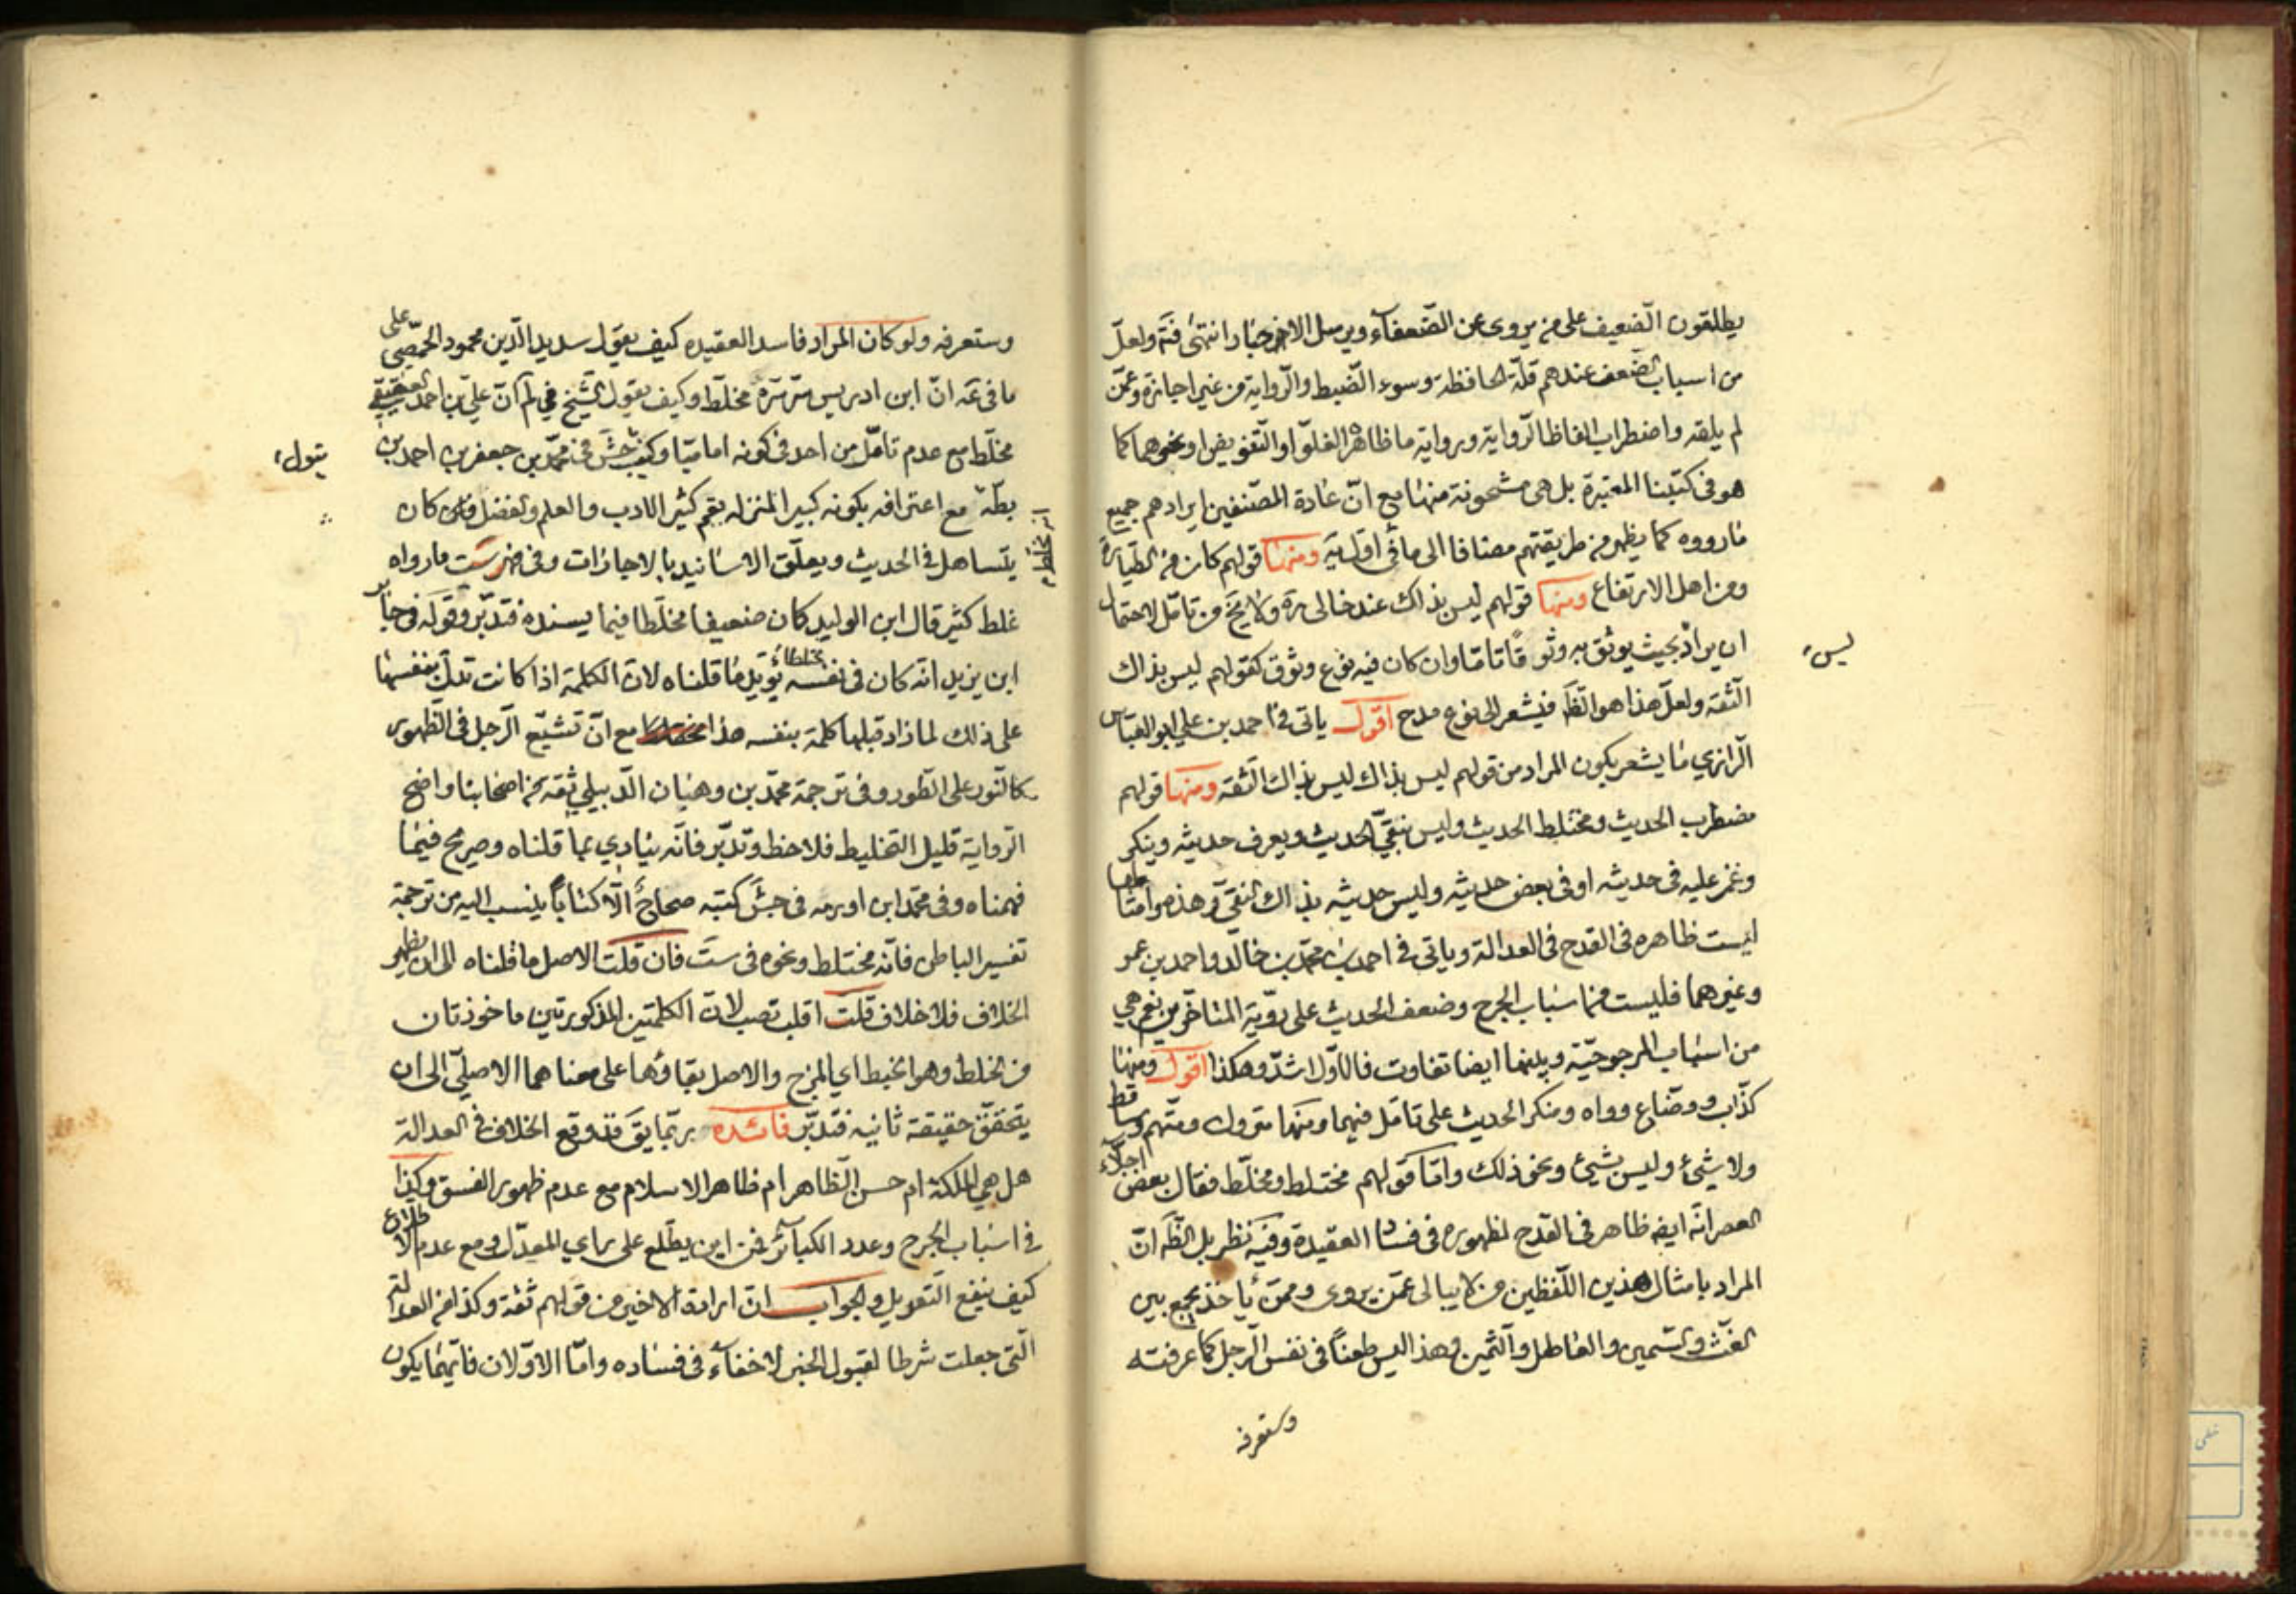 يطلقون الضعيف على من يروى عن الضعفآء ويرسل الاخبار انتهى فتم ولعلّ
من اسباب الضعف عندهم قلّة الحافظة وسوء الضبط والرواية من غير اجازة وعمّن
لم يلقه واضطراب الفاظ الرواية ورواية ما ظاهره الغلوّ او التفويض او نحوهما كما
هو فى كتبنا المعتبرة بل هى مشحونة منها مع انّ عادة المصنفين ايرادهم جميع
ما رووه كما يظهر من طريقتهم مضافا الى ما فى اوّل يه ومنها قولهم كان من الطيارة
ومن اهل الارتفاع ومنها قولهم ليس بذاك عند خالى ره ولا يخ من تامّل لاحتمال
ان يراد بحيث يوثق به وثوقا تامّا وان كان فيه نوع وثوق كقولهم ليس بذاك
ليس
الثقة ولعلّ هذا هو الظ فيشعر الى نوع مدح اقول ياتى فى احمد بن على ابو العباس
الرازي ما يشعر بكون المراد من قولهم ليس بذاك ليس بذاك الثقه ومنها قولهم
مضطرب الحديث ومختلط الحديث وليس بنقيّ الحديث ويعرف حديثه وينكر
وغمز عليه فى حديثه او فى بعض حديثه وليس حديثه بذاك النقيّ وهذه وامثالها
ليست ظاهره فى القدح فى العدالة وياتى فى احمد بن محمّد بن خالد واحمد بن عمر
وغيرهما فليست من اسباب الجرح وضعف الحديث على رويّة المتاخّرين نعم هي
من اسباب المرجوحيّة وبينهما ايضا تفاوت فالاوّل اشدّ وهكذا اقول ومنها
كذّاب ووضّاع وواه ومنكر الحديث على تامّل فيهما ومنها متروك ومتّهم وساقط
ولا شيئ وليس بشيئ ونحو ذلك وامّا قولهم مختلط ومخلّط فقال بعض اجلّاء
العصر انّه ايضه ظاهر فى القدح لظهوره فى فساد العقيدة وفيه نظر بل الظ انّ
المراد بامثال هذين اللّفظين من لا يبالى عمّن يروى وممّن يأخذ يجمع بين
الغثّ والسّمين والعاطل والثمين وهذا ليس طعناً فى نفس الرجل كما عرفته
وستعرفه
وستعرفه ولو كان المراد فاسد العقيده كيف يقول سديد الدّين محمود الحمّصي على
ما فى عَه انّ ابن ادريس سرّ سرّه مخلّط وكيف يقول الشيخ في لم انّ عليّ بن احمد العقيقيّ
مخلّط مع عدم تامّل من احد فى كونه اماميّا وكيف جش فى محمّد بن جعفر بن احمد بن
يقول
بطّة مع اعترافه بكونه كبير المنزله بقم كثير الادب والعلم والفضل كان
يتساهل فى الحديث ويعلّق الاسانيد بالاجازات وفى فهرست ما رواه
غلط كثير قال ابن الوليد كان ضعيفا مخلّطا فيما يسنده فتدبّر وقوله فى جابر
ابن يزيد انّه كان فى نفسه مختلطا يؤيّد ما قلناه لان الكلمة اذا كانت تدلّ بنفسها
على ذلك لما زاد قبلها كلمة بنفسه هذا مع انّ تشيّع الرجل فى الظهور
كالنور على الطور وفى ترجمة محمّد بن وهبان الدّبيلي ثقه من اصحابنا واضح
الرواية قليل التخليط فلاحظ وتدبّر فانّه ينادي بما قلناه وصريح فيما
فهمناه وفى محمّد ابن اورمه فى جش كتبه صحاح الّا كتاباً ينسب اليه من ترجمة
تفسير الباطن فانّه مختلط ونحوه فى ست فان قلت الاصل ما قلناه الى ان يظهر
الخلاف فلا خلاف قلت اقلب تصب لانّ الكلمتين المذكورتين ماخوذتان
من الخلط وهو الخبط اي المزج والاصل بقاؤهما على معناهما الاصليّ الى ان
يتحقّق حقيقة ثانيه فتدبّر فائده ربّما يق قد وقع الخلاف فى العدالة
هل هي الملكة ام حسن الظاهر ام ظاهر الاسلام مع عدم ظهور الفسق وكذا
فى اسباب الجرح وعدد الكبآئر فمن اين يطّلع على راي المعدّل ومع عدم الاطّلاع
كيف ينفع التعديل والجواب انّ ارادة الاخير من قولهم ثقة وكذا من العدالة
الّتى جعلت شرطا لقبول الخبر لا خفآء فى فساده وامّا الاوّلان فايّهما يكون